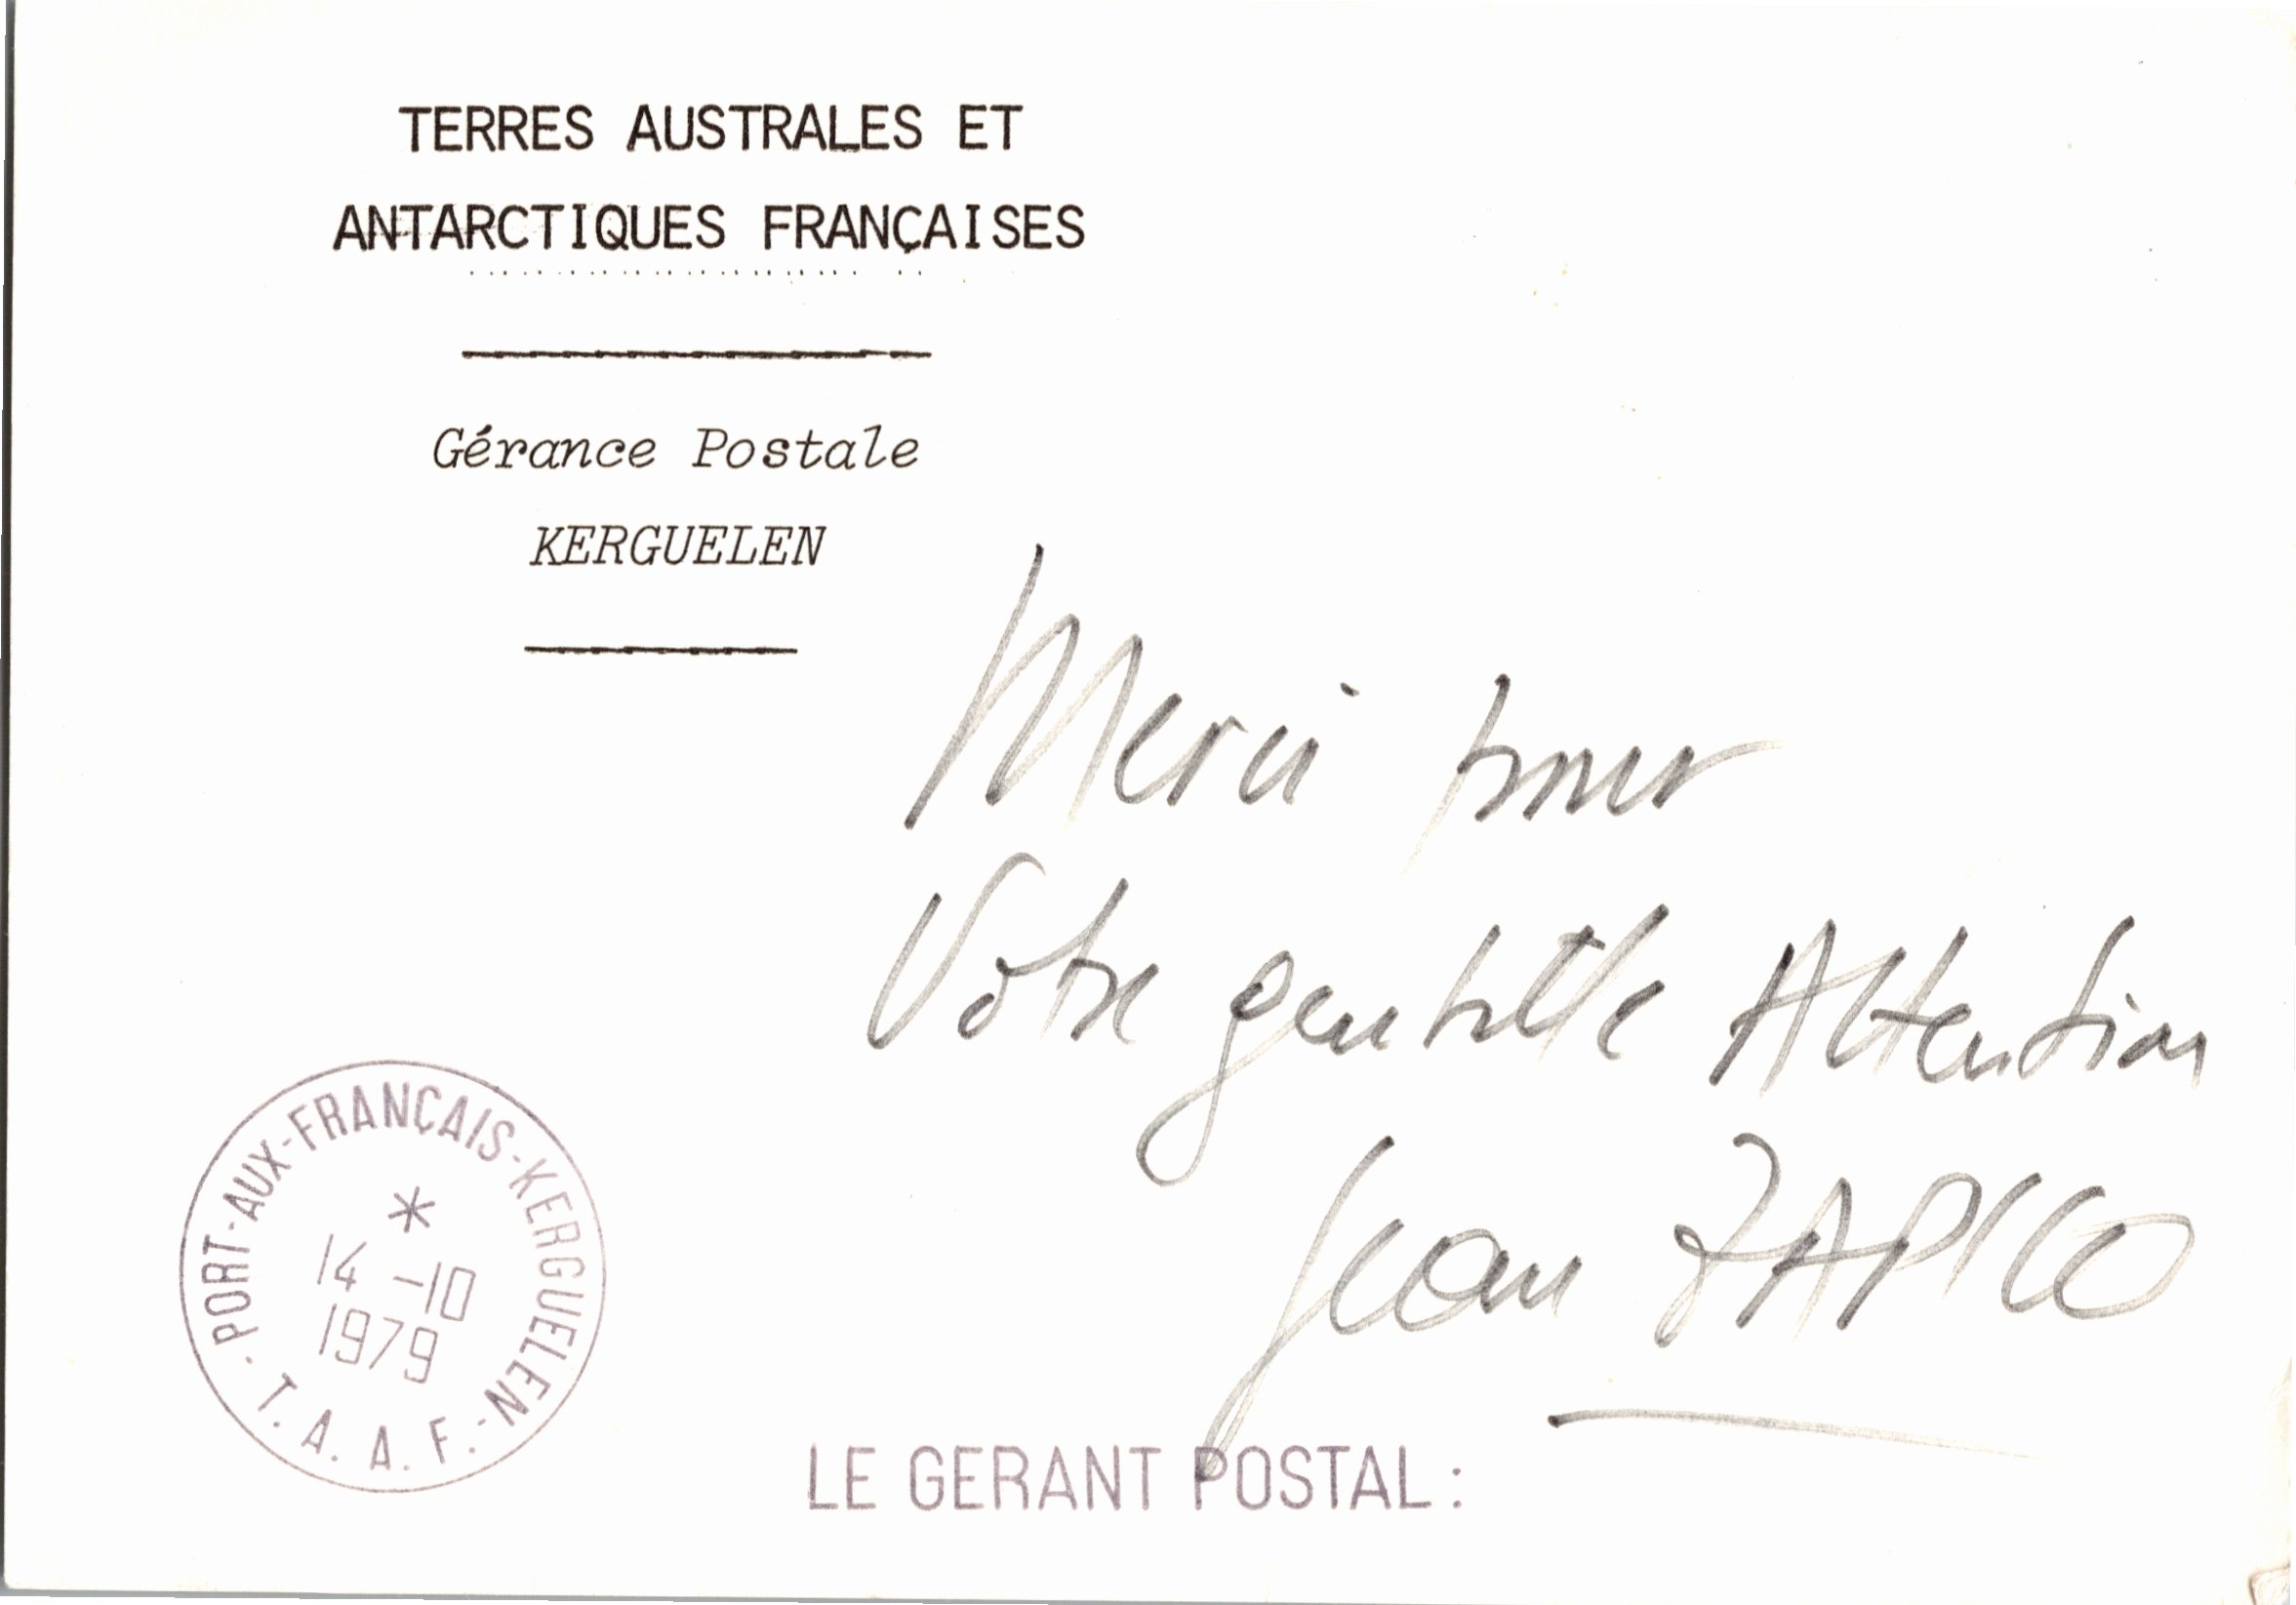 TERRES AUSTRALES ET
ANTARCTIQUES FRANÇAISES
Gérance Postale
KERGUELEN
Merci pour
Votre gentille Attention
Jean ZAPICO
PORT-AUX-FRANÇAIS-KERGUELEN-
T.A.A.F.
14-10
1979
LE GERANT POSTAL: